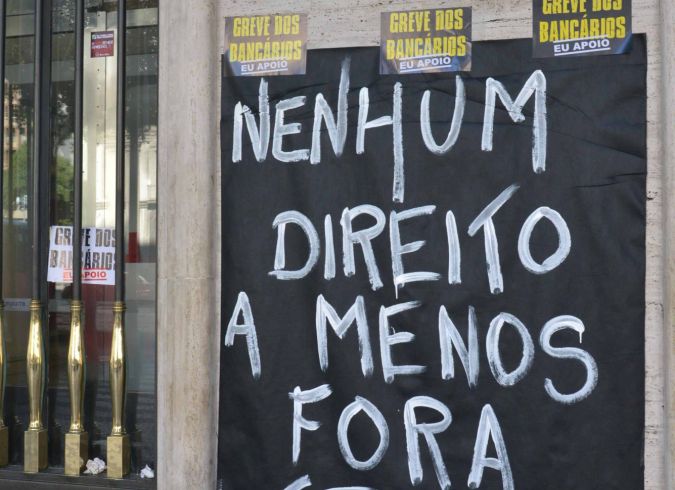 GREVE DOS
BANCÁRIOS
EU APOIO
GREVE DOS
BANCÁRIOS
EU APOIO
GREVE DOS
BANCÁRIOS
EU APOIO
NENHUM
DIREITO
A MENOS
FORA
GREVE DOS
BANCÁRIOS
EU APOIO